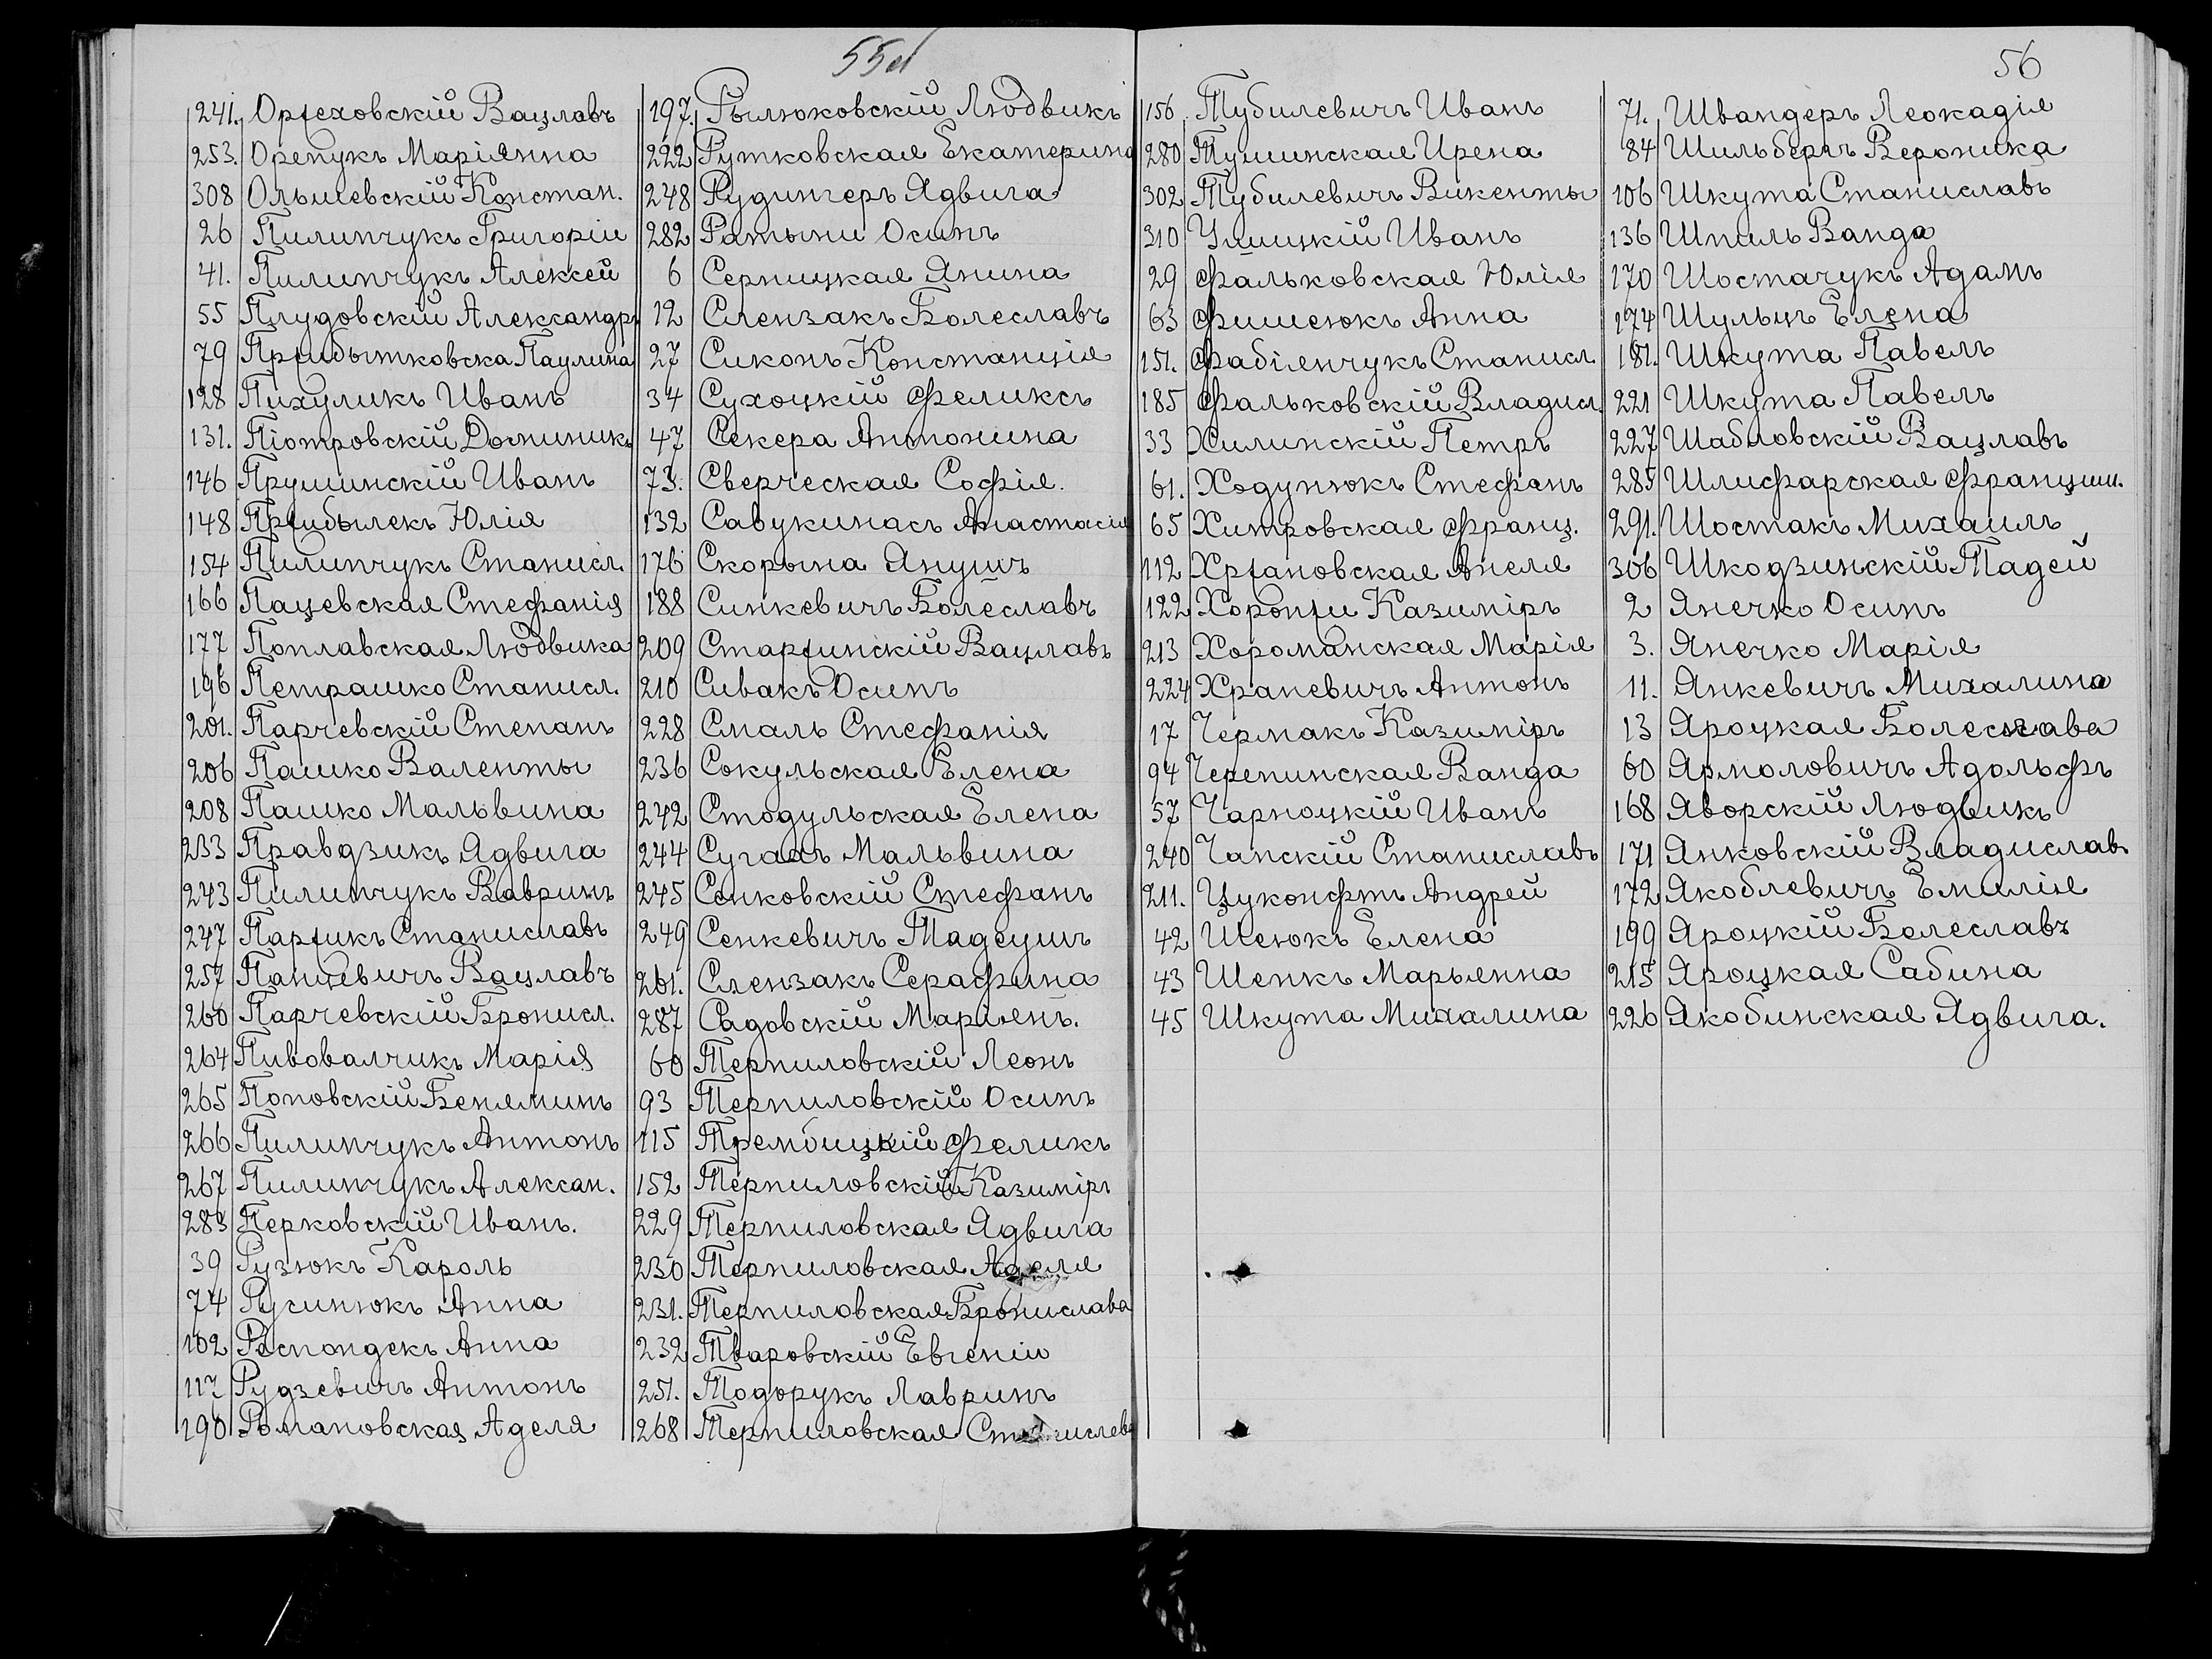 55об
241. Оржеховскій Вацлавъ
253. Орепукъ Маріянна
308 Ольшевскій Констан.
26 Пилипчукъ Григоріи
41. Пилипчукъ Алексей
55 Плудовскій Александръ
79 Пржибытковска Паулина
128 Пихуликъ Иванъ
131. Піотровскій Доминикъ
146 Прушинскій Иванъ
148 Пржибылекъ Юлія
154 Пилипчукъ Станисл.
166 Пацевская Стефанія
177 Поплавская Людвика
196 Петрашко Станисл.
201. Парчевскій Степанъ
206 Пашко Валенты
208 Пашко Мальвина
233 Правдзикъ Ядвига
243 Пилипчукъ Вавринъ
247 Паржикъ Станиславъ
257 Панцевичъ Вацлавъ
260 Парчевскій Бронисл.
264 Пивоварчикъ Марія
265 Поповскій Беняминъ
266 Пилипчукъ Антонъ
267 Пилипчукъ Алексан.
283 Перковскій Иванъ.
39 Рузюкъ Кароль
74 Русинюкъ Анна
102 Распондекъ Анна
117 Рудзевичъ Антонъ
190 Романовская Аделя
197. Рылюковскій Людвикъ
222 Рутковская Екатерина
248 Рудингеръ Ядвига
282 Ратыни Осипъ
6 Серницкая Янина
12 Слензакъ Болеславъ
27 Сиконъ Констанція
34 Сухоцкій Феликсъ
47 Секера Антонина
73. Сверческая Софія.
132 Савукинасъ Анастасія
176 Скорына Янушъ
188 Синкевичъ Болеславъ
209 Старжинскій Вацлавъ
210 Сивакъ Осипъ
228 Смаль Стефанія
236 Сокульская Елена
242 Стодульская Елена
244 Сугаль Мальвина
245 Сенковскій Стефанъ
249 Сенкевичъ Тадеушъ
261. Слензакъ Серафина
287 Садовскій Маріянъ.
60 Терпиловскій Леонъ
93 Терпиловскій Осипъ
115 Трембицкій Феликъ
152 Терпиловскій Казиміръ
229 Терпиловская Ядвига
230 Терпиловская Аделя
231. Терпиловская Бронислава
232 Тваровскій Евгеніи
251. Тодорукъ Лавринъ
268 Терпиловская
56
156 Тубилевичъ Иванъ
280 Тушинская Ирена
302 Тубилевичъ Викенты
310 Улицкій Иванъ
29 Фальковская Юлія
63 Фишеюкъ Анна
151. Фабіянчукъ Станисл.
185 Фальковскій Владисл.
33 Хилинскій Петръ
61. Ходунюкъ Стефанъ
65 Хитровская Франц.
112 Хржановская Анеля
122 Хоронжи Казиміръ
213 Хороманская Марія
224 Храпевичъ Антонъ
17 Чермакъ Казиміръ
94 Черепинская Ванда
57 Чарноцкій Иванъ
240 Чапскій Станиславъ
211. Цуконфтъ Андрей
42 Шеюкъ Елена
43 Шепкъ Марьянна
45 Шкута Михалина
71. Швандеръ Леокадія
84 Шильбергъ Вероника
106 Шкута Станиславъ
136 Шпиль Ванда
170 Шостачукъ Адамъ
174 Шульцъ Елена
181. Шкута Павелъ
221 Шкута Павелъ
227 Шабловскій Вацлавъ
285 Шлифарская Францишк.
291. Шостакъ Михаилъ
306 Шкодзинскій Тадей
2 Янечко Осипъ
3. Янечко Марія
11. Янкевичъ Михалина
13 Яроцкая Болеслава
60 Ярмоловичъ Адольфъ
168 Яворскій Людвикъ
171 Янковскій Владиславъ
172 Якоблевичъ Емилія
199 Яроцкій Болеславъ
215 Яроцкая Сабина
226 Якобинская Ядвига.